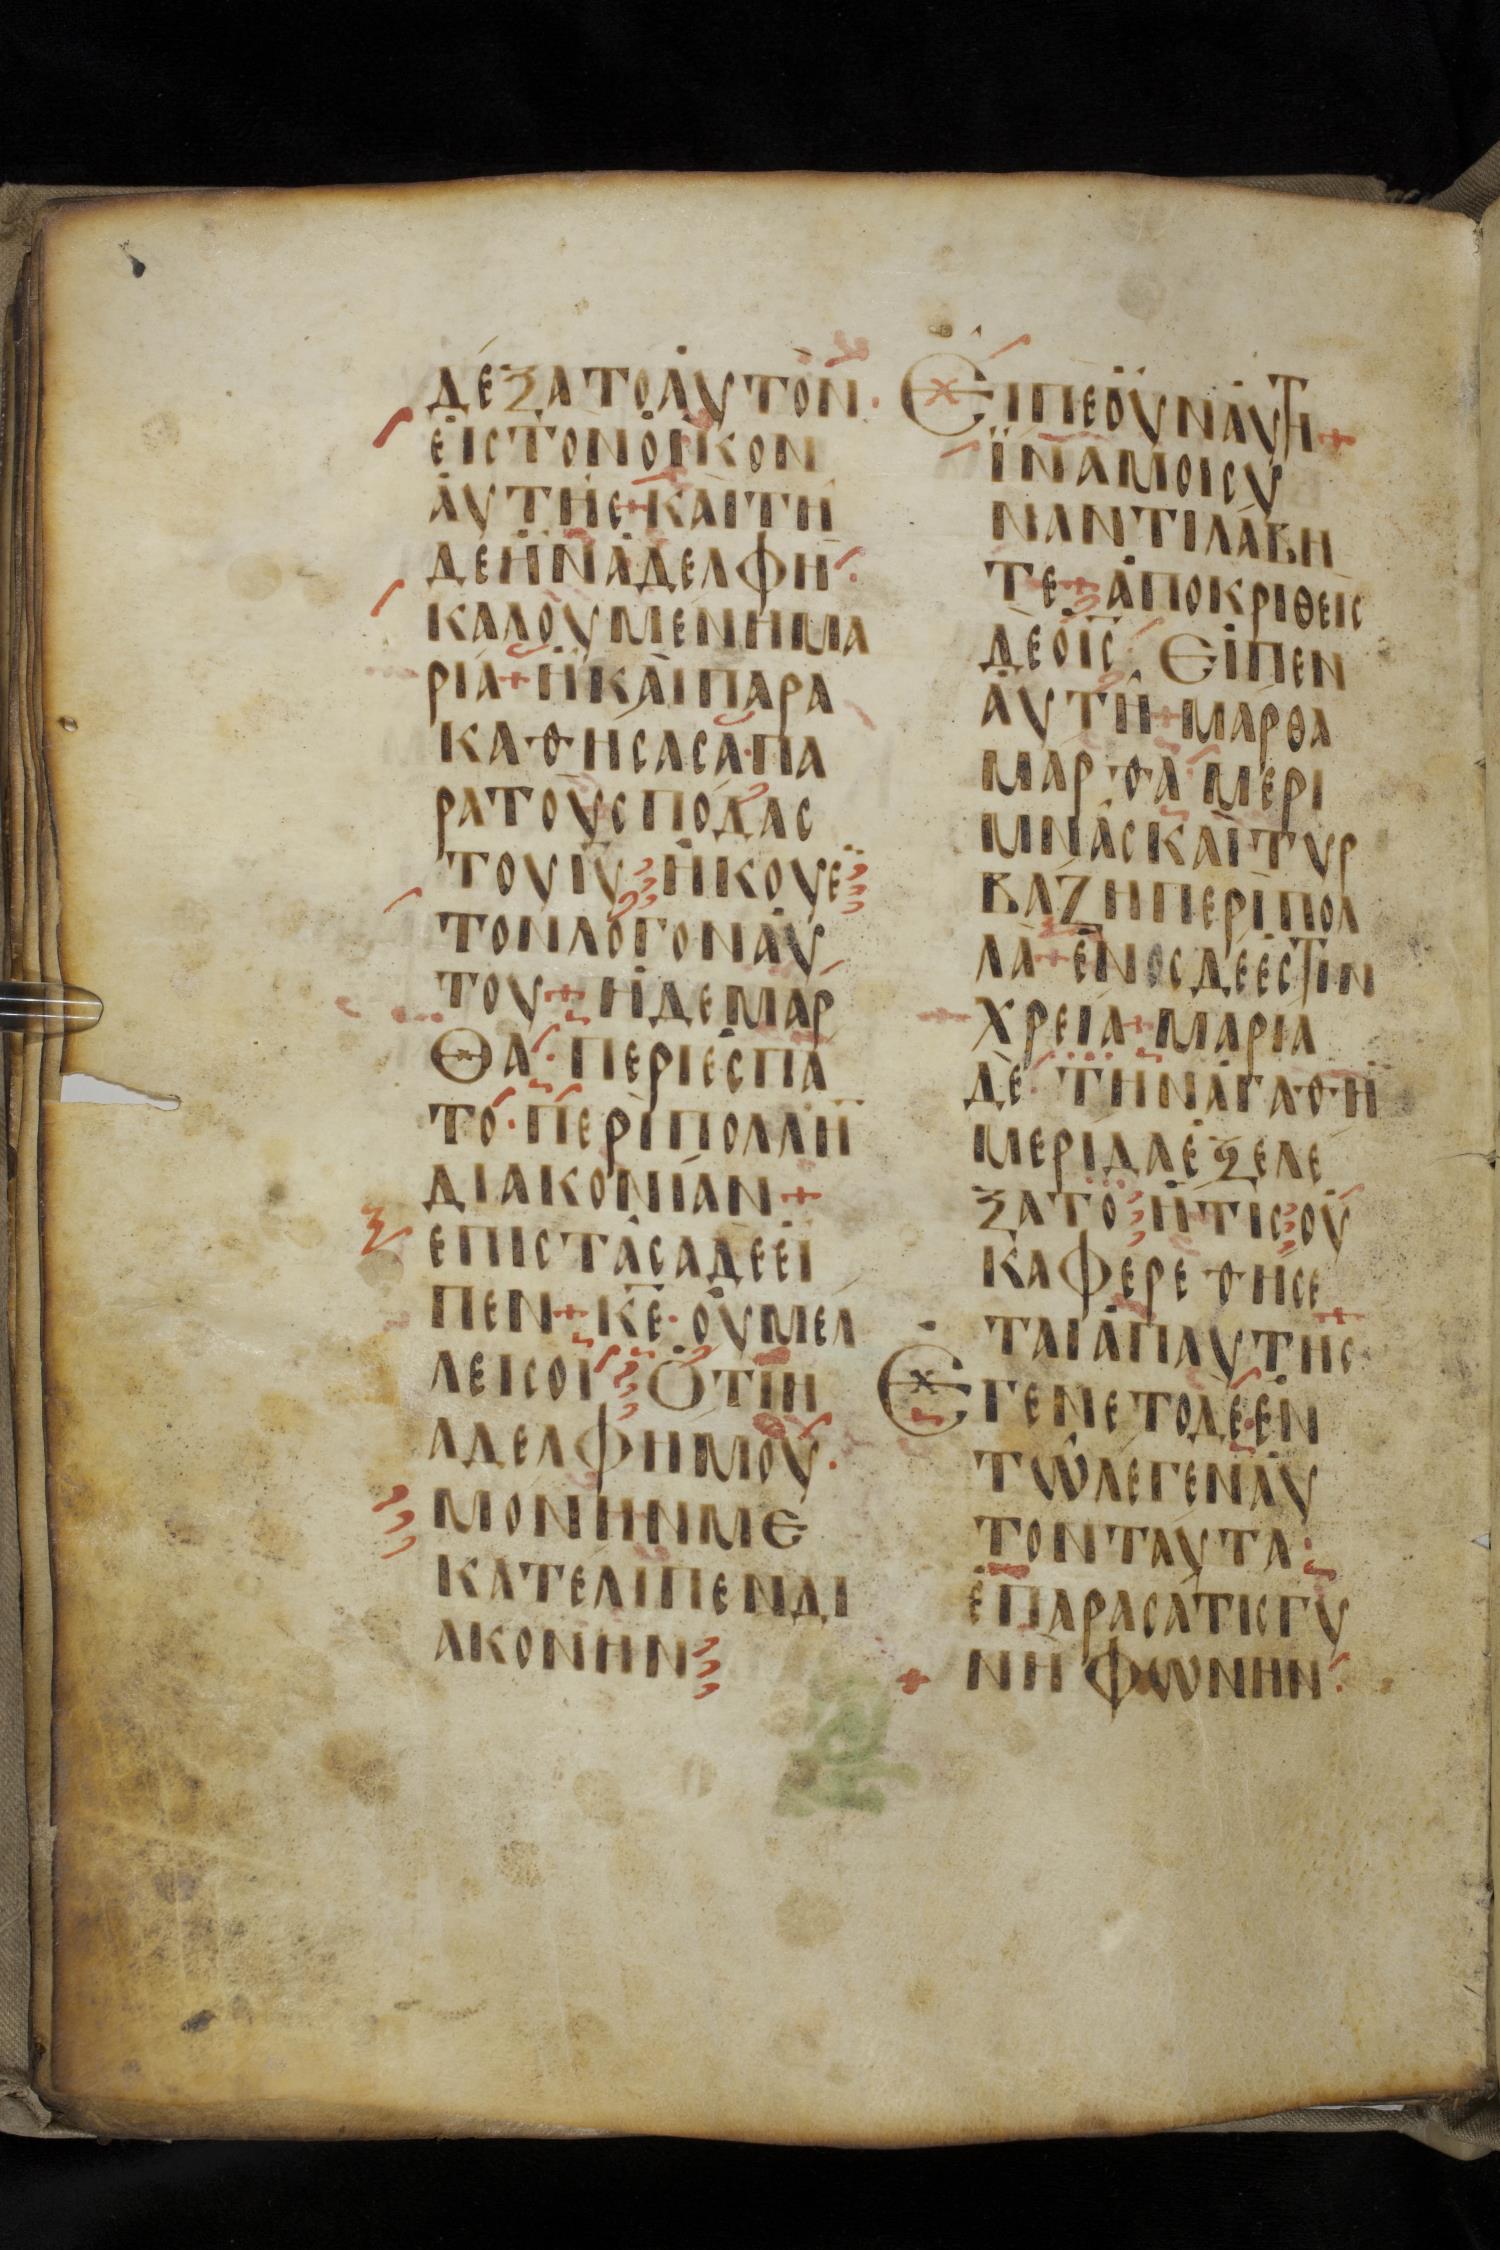 ΔΕΞΑΤΟΑΥΤΟΝ·
ΕΙΣΤΟΝΟΙΚΟΝ
ΑΥΤΗΣ+ΚΑΙΤΗ
ΔΕΗΝΑΔΕΛΦΗ·
ΚΑΛΟΥΜΕΝΗΜΑ
ΡΙΑ+ΗΚΑΙΠΑΡΑ
ΚΑΘΗΣΑΣΑ·ΠΑ
ΡΑΤΟΥΣΠΟΔΑΣ
ΤΟΥΙΥ ΗΚΟΥΕ
ΤΟΝΛΟΓΟΝΑΥ
ΤΟΥ+ΗΔΕΜΑΡ
ΘΑ·ΠΕΡΙΕΣΠΑ
ΤΟ·ΠΕΡΙΠΟΛΛΗ̅
ΔΙΑΚΟΝΙΑΝ+
ΕΠΙΣΤΑΣΑΔΕΕΙ
ΠΕΝ+Κ̅Ε̅·ΟΥΜΕΛ
ΛΕΙΣΟΙ ΟΤΙΗ
ΑΔΕΛΦΗΜΟΥ·
ΜΟΝΗΝΜΕ
ΚΑΤΕΛΙΠΕΝΔΙ
ΑΚΟΝΗΝ
ΕΙΠΕΟΥΝΑΥΤΗ+
ΪΝΑΜΟΙΣΥ
ΝΑΝΤΙΛΑΒΗ
ΤΕ+ΑΠΟΚΡΙΘΕΙΣ
ΔΕΟΙ̅Σ̅ ΕΙΠΕΝ
ΑΥΤΗ+ΜΑΡΘΑ
ΜΑΡΘΑ·ΜΕΡΙ
ΜΝΑΣΚΑΙΤΥΡ
ΒΑΖΗΠΕΡΙΠΟΛ
ΛΑ+ΕΝΟΣΔΕΕΣΤΙΝ
ΧΡΕΙΑ+ΜΑΡΙΑ
ΔΕ ΤΗΝΑΓΑΘΗ̅
ΜΕΡΙΔΑΕΞΕΛΕ
ΞΑΤΟ ΗΤΙΣ ΟΥ
ΚΑΦΕΡΕΘΗΣΕ
ΤΑΙΑΠΑΥΤΗΣ+
ΕΓΕΝΕΤΟΔΕ·ΕΝ
ΤΩΛΕΓΕΝΑΥ
ΤΟΝΤΑΥΤΑ:
ΕΠΑΡΑΣΑΤΙΣΓΥ
ΝΗ ΦΩΝΗΝ·